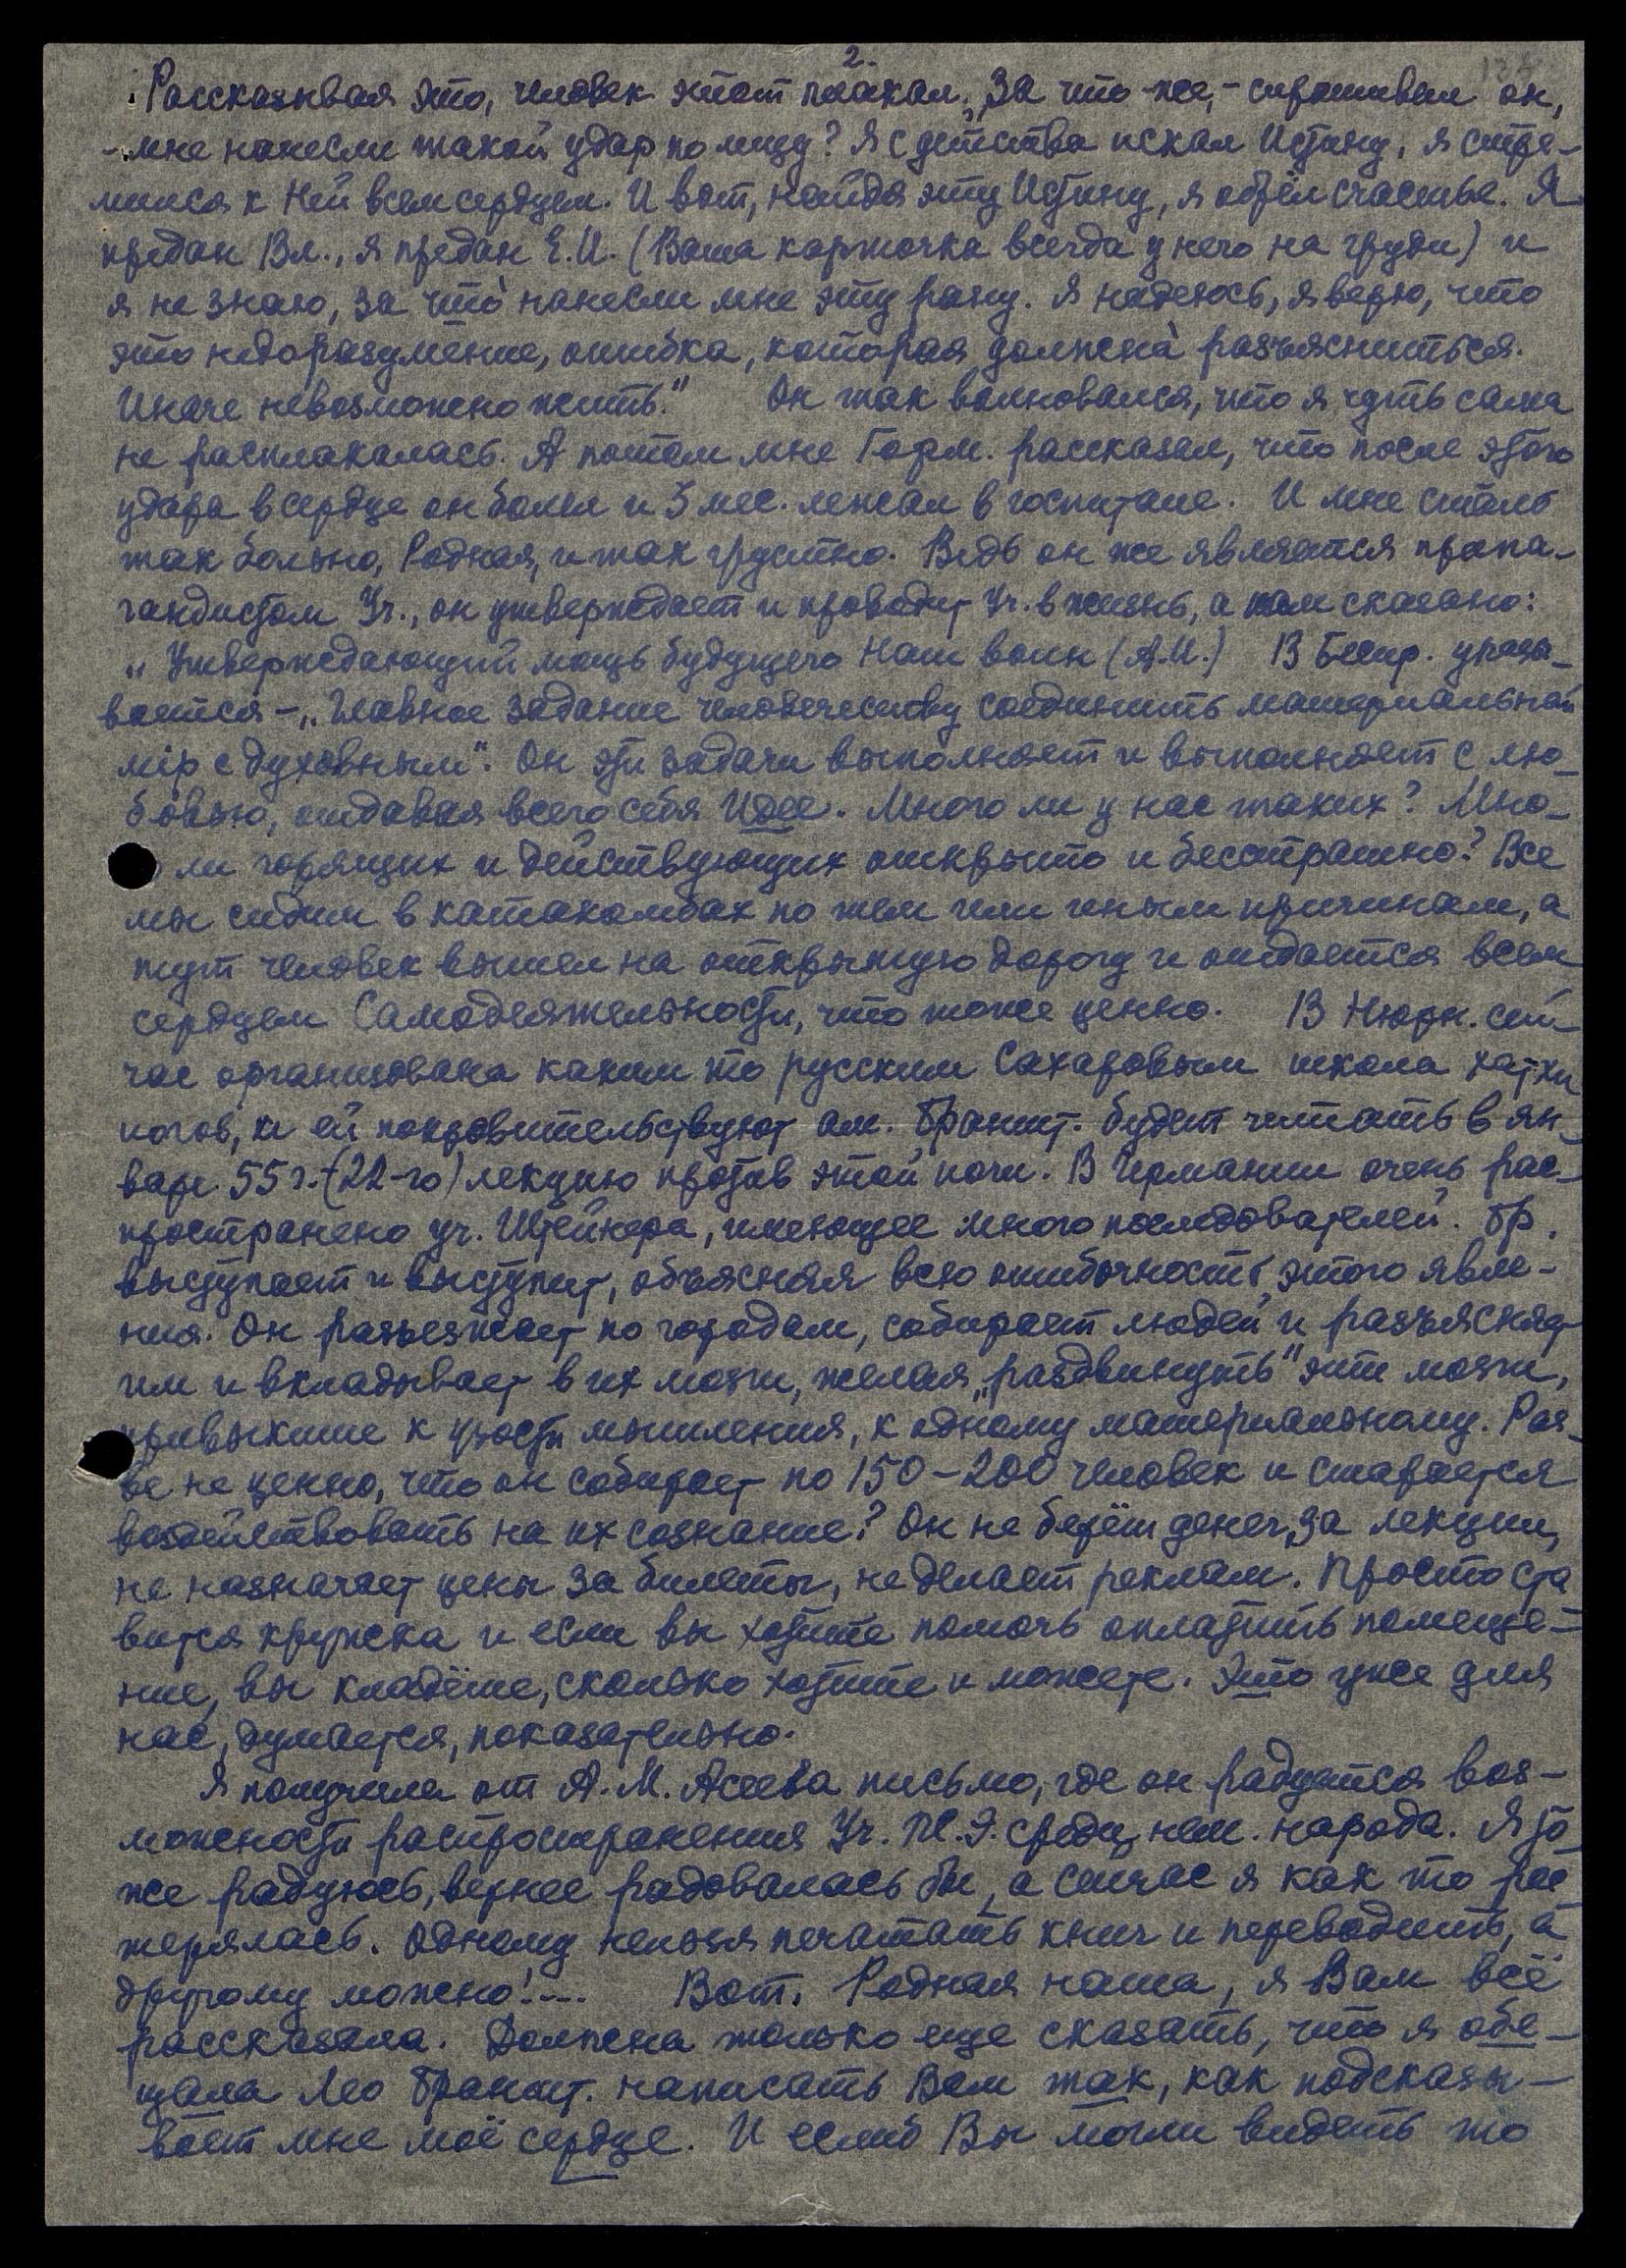 2.
Рассказывая это, человек этот плакал. „За что же,- спрашивал он,
- мне нанесли такой удар по лицу? Я с детства искал Истину, я стре-
мился к Ней всем сердцем. И вот, найдя эту Истину, я обрёл счастье. Я
предан Вл., я предан Е.И. (Ваша карточка всегда у него на груди) и
я не знаю, за что̀ нанесли мне эту рану. Я надеюсь, я верю, что
это недоразумение, ошибка, которая должна̀ разъясниться.
Иначе невозможно жить." Он так волновался, что я чуть сама
не расплакалась. А потом мне Горм. рассказал, что после этого
удара в сердце он болел и 3 мес. лежал в госпитале. И мне стало
так больно, Родная, и так грустно. Ведь он же является пропа-
гандистом Уч., он утверждает и проводит Уч. в жизнь, а нам сказано:
„Утверждающий мощь будущего Наш воин (А.И.) В Беспр. указы-
вается - „Главное задание человечеству соединить материальный
мiр с духовным". Он эти задачи выполняет и выполняет с лю-
бовью, отдавая всего себя Идее. Много ли у нас таких? Мно-
ли горящих и действующих открыто и бесстрашно? Все
мы сидим в катакомбах по тем или иным причинам, а
тут человек вышел на открытую дорогу и отдается всем
сердцем Самодеятельности, что тоже ценно. В Нюрн. сей-
час организована каким то русским Сахаровым школа хатхи
иогов, и ей покровительствуют ам. Бранит. будет читать в ян-
варе 55 г. (22-го) лекцию против этой иоги. В Германии очень рас-
пространено уч. Штейнера, имеющее много последователей. Бр.
выступает и выступит, объясняя всю ошибочность этого явле-
ния. Он разъезжает по городам, собирает людей и разъясняет
им и вкладывает в их мозги, желая „раздвинуть" эти мозги,
привыкшие к узости мышления, к одному материальному. Раз-
ве не ценно, что он собирает по 150-200 человек и старается
воздействовать на их сознание? Он не берёт денег за лекции,
не назначает цены за билеты, не делает реклам. Просто ста
вится кружка и если вы хотите помочь оплатить помеще-
ние, вы кладёте, сколько хотите и можете. Это уже для
нас, думается, показательно.
Я получила от А.М. Асеева письмо, где он радуется воз-
можности распространения Уч. Ж.Э. среди нем. народа. Я то
же радуюсь, вернее радовалась бы, а сейчас я как то рас
терялась. Одному нельзя печатать книг и переводить, а
другому можно!... Вот, Родная наша, я Вам всё
рассказала. Должна только еще сказать, что я обе-
щала Лео Бранит. написать Вам так, как подсказы-
вает мне моё сердце. И еслиб Вы могли видеть то